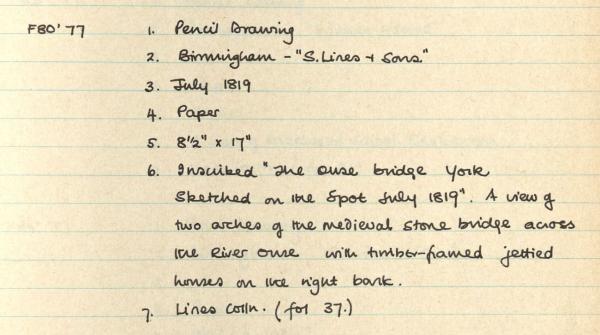 FBO'77 1. Pencil Drawing
2. Birmingham - "S. Lines + Sons"
3. July 1819
4. Paper
5. 8½" x 17"
6. Inscribed "The Ouse bridge York
Sketched on the Spot July 1819". A view of
two arches of the medieval stone bridge across
the River Ouse with timber-framed jettied
houses on the right bank.
7. Lines Colln. (fol 37.)